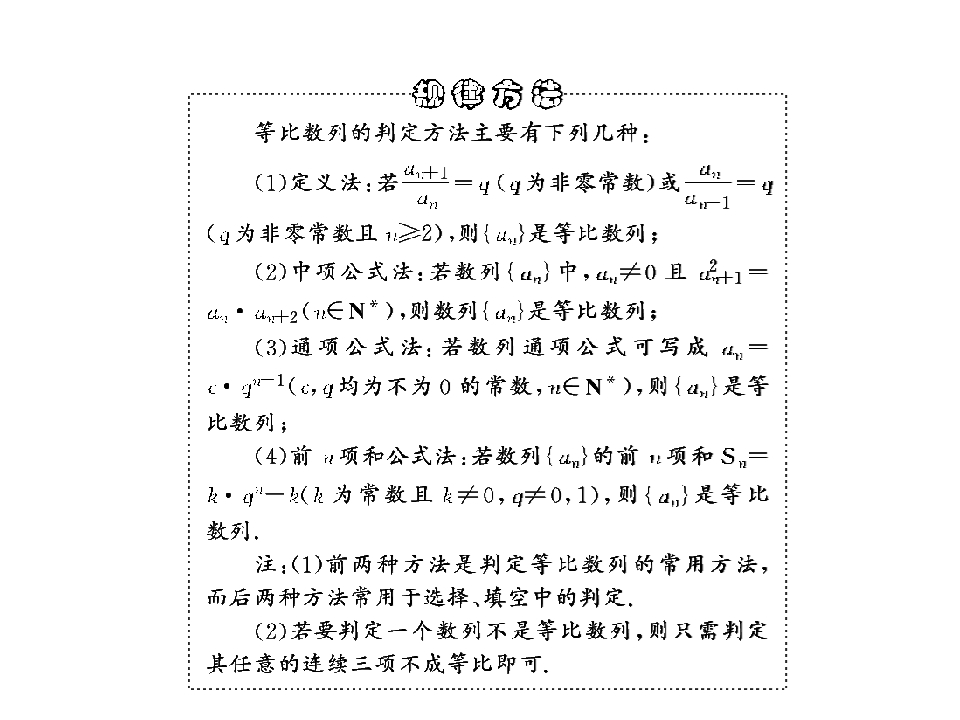 规律方法
等比数列的判定方法主要有下列几种:
(1)定义法:若 a_{n+1}/a_n = q (q 为非零常数)或 a_n/a_{n-1} = q
(q 为非零常数且 n≥2),则{a_n}是等比数列;
(2)中项公式法:若数列{a_n}中,a_n≠0 且 a²_{n+1}=
a_n·a_{n+2}(n∈N*),则数列{a_n}是等比数列;
(3)通项公式法:若数列通项公式可写成 a_n=
c·q^{n-1}(c,q 均为不为 0 的常数,n∈N*),则{a_n}是等
比数列;
(4)前 n 项和公式法:若数列{a_n}的前 n 项和 S_n=
k·q^n-k(k 为常数且 k≠0,q≠0,1),则{a_n}是等比
数列.
注:(1)前两种方法是判定等比数列的常用方法,
而后两种方法常用于选择、填空中的判定.
(2)若要判定一个数列不是等比数列,则只需判定
其任意的连续三项不成等比即可.